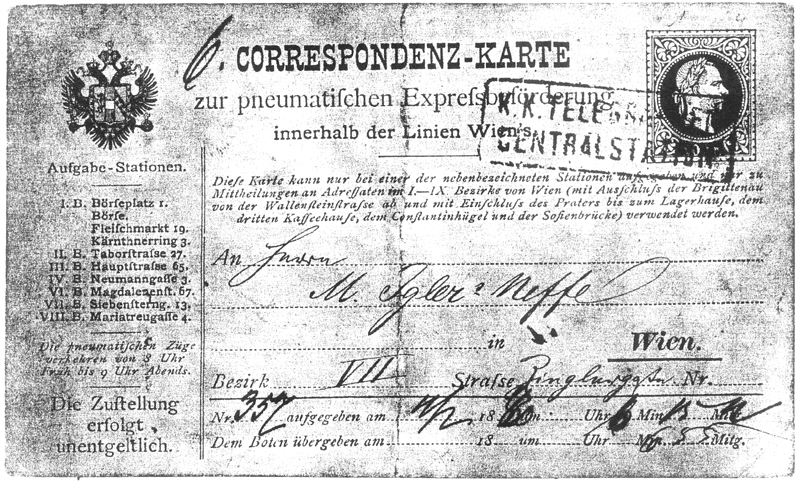 6.
CORRESPONDENZ-KARTE
zur pneumatiſchen Expreſsbeförderung
innerhalb der Linien Wien's.
K.K. TELEGRA
CENTRALSTATION
Aufgabe-Stationen.
I. B. Börſeplatz 1.
Börſe.
Fleiſchmarkt 19.
Kärnthnerring 3.
II. B. Taborſtraſse 27.
III. B. Hauptſtraſse 65.
IV. B. Neumanngaſſe 3.
VI. B. Magdalenenſt. 67.
VII. B. Siebenſterng. 13.
VIII. B. Mariatreugaſſe 4.
Die pneumatiſchen Züge
verkehren von 8 Uhr
Früh bis 9 Uhr Abends.
Die Zuſtellung
erfolgt
unentgeltlich.
Dieſe Karte kann nur bei einer der nebenbezeichneten Stationen aufgegeben und nur zu
Mittheilungen an Adreſſaten im I.—IX. Bezirke von Wien (mit Ausſchluſs der Brigittenau
von der Wallenſteinſtraſse ab und mit Einſchluſs des Praters bis zum Lagerhauſe, dem
dritten Kaffeehauſe, dem Conſtantinhügel und der Sofienbrücke) verwendet werden.
An Herrn
M. Igler's Neffe
in Wien.
Bezirk VII Straſse Nr.
Nr. 357 aufgegeben am 18 80 um Uhr 6 Min 15 Mitg.
Dem Boten übergeben am 18 um Uhr Min Mitg.